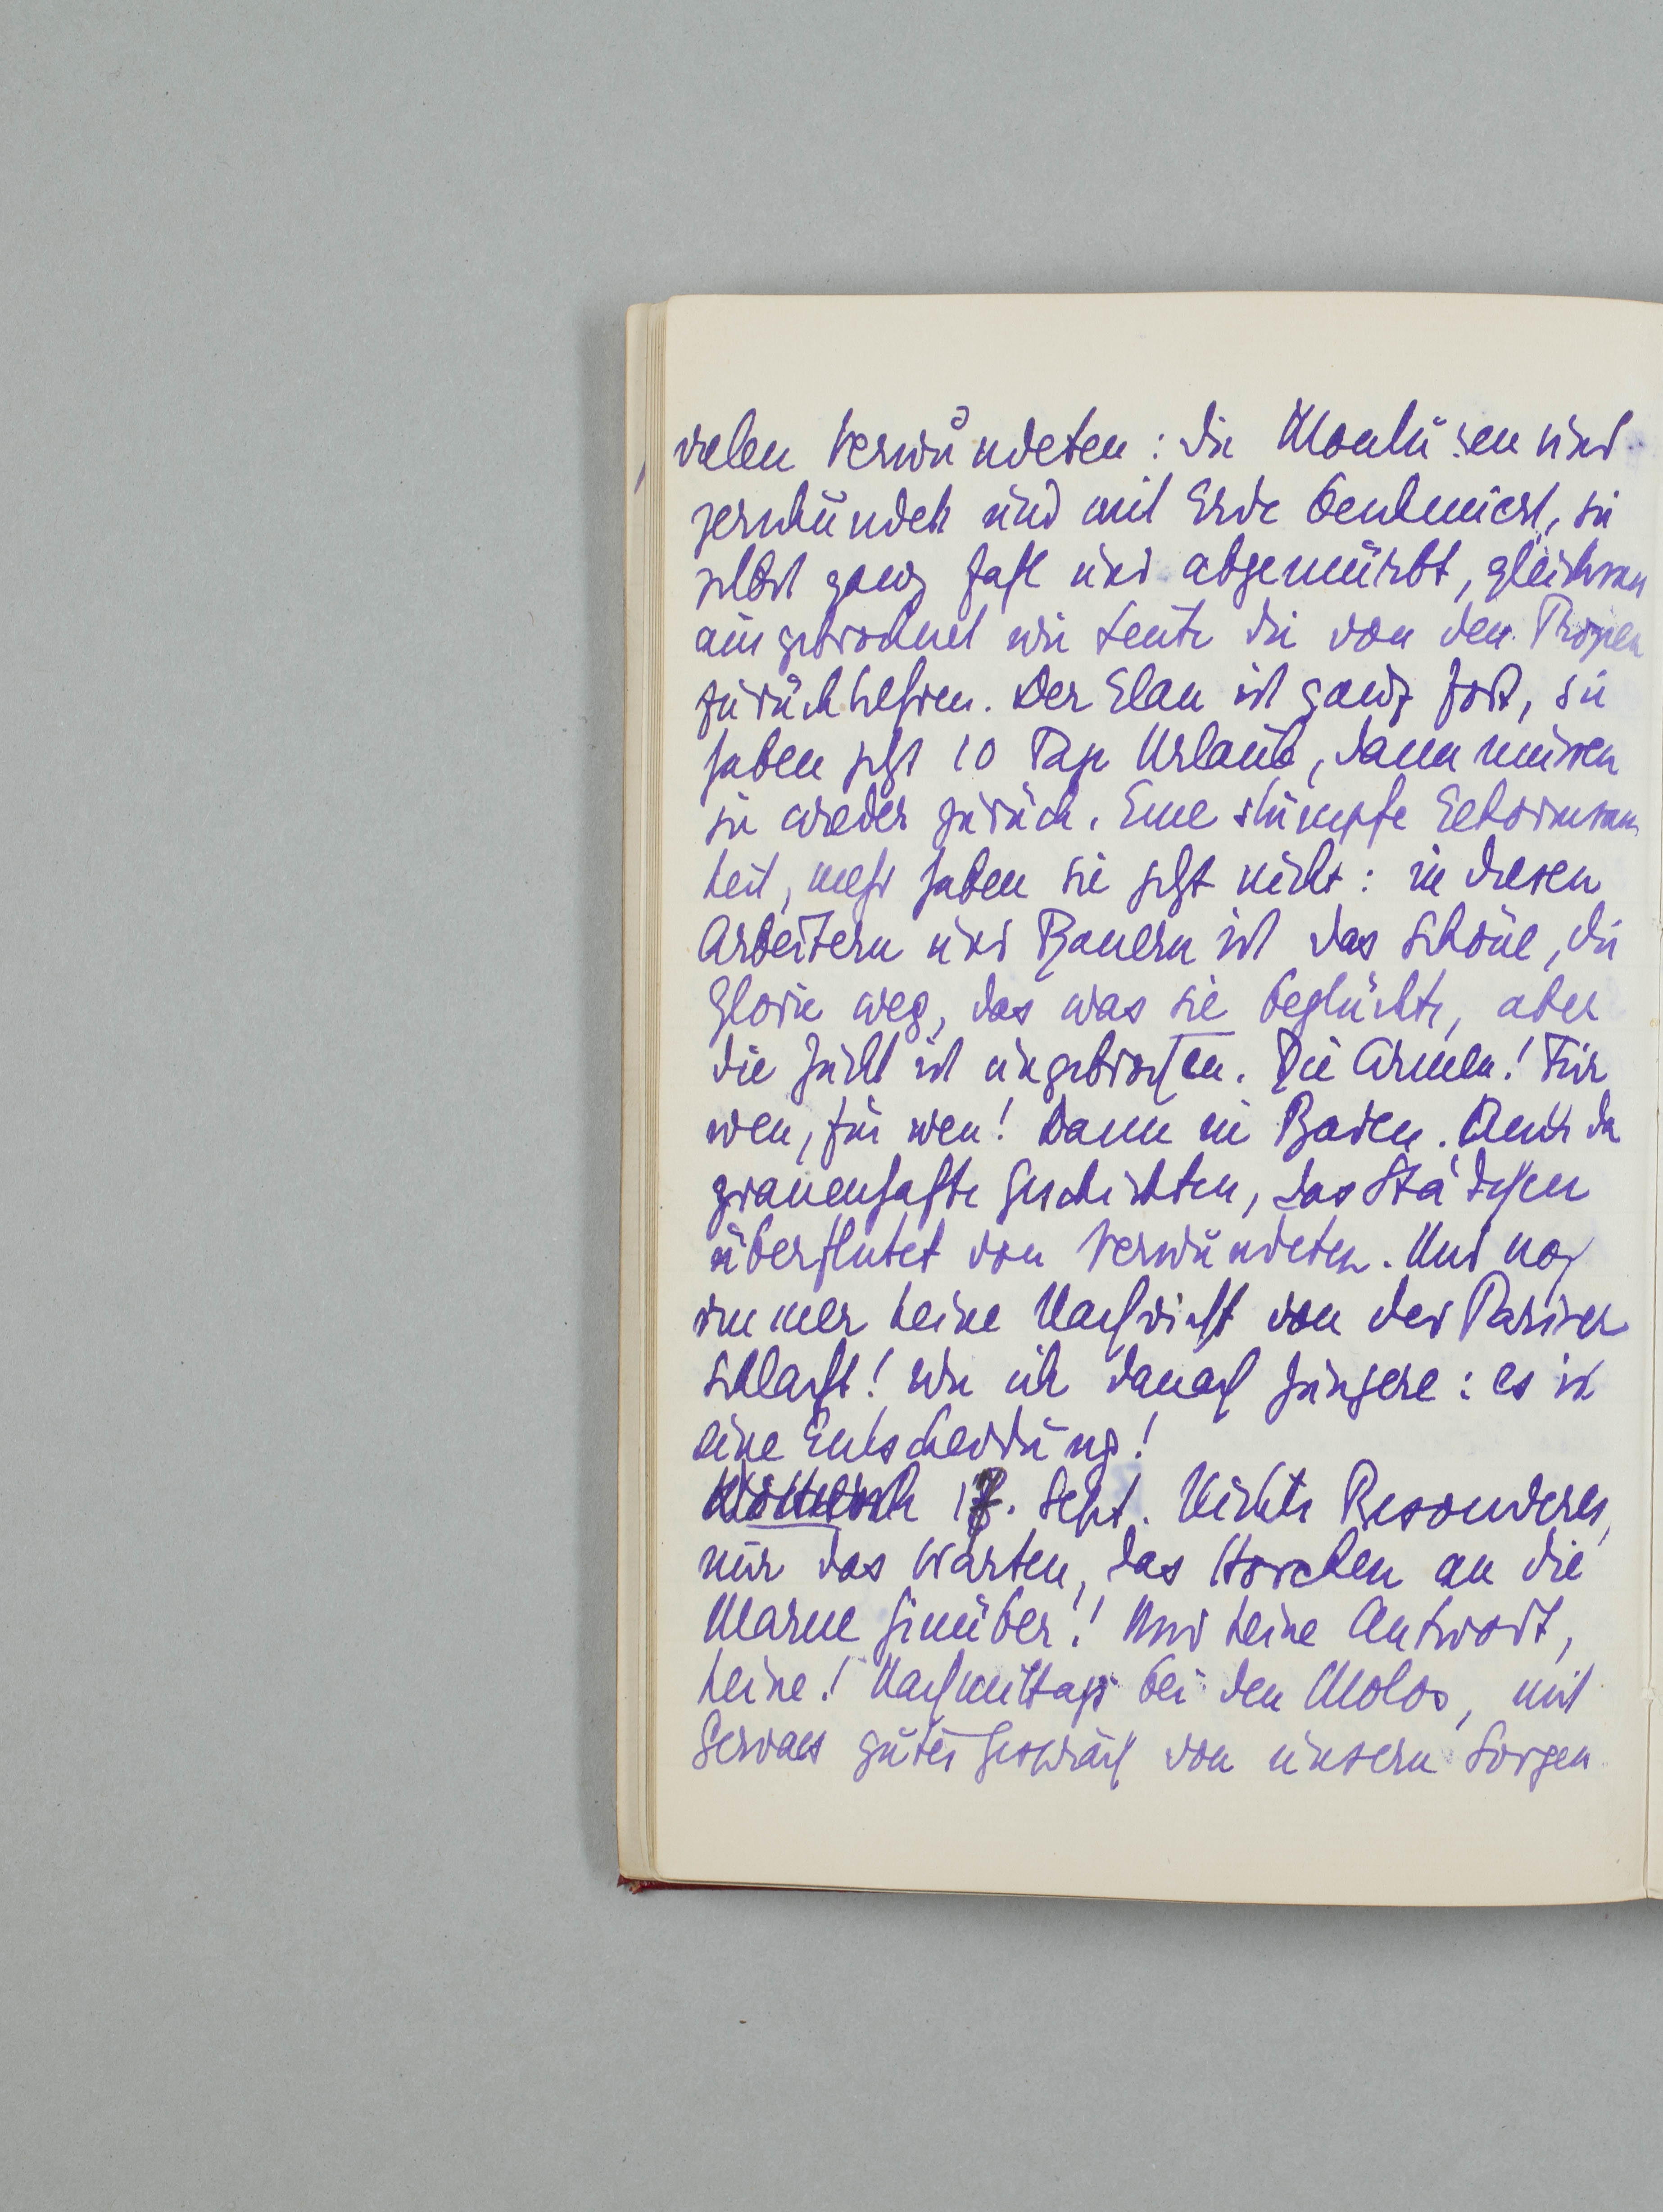 vielen Verwundeten: die Monturen sind
zerschunden und mit Erde beschmiert, sie
selbst ganz fahl und abgemürbt, gleichsam
ausgetrocknet wie Leute die von den Tropen
zurückkehren. Der Elan ist ganz fort, sie
haben jetzt 10 Tage Urlaub, dann müssen
sie wieder zurück. Eine stumpfe Gehorsam
keit, mehr haben sie jetzt nicht: in diesen
Arbeitern und Bauern ist das Schöne, die
Glorie weg, das was sie beglückte, aber
die Zucht ist ungebrochen. Die Armen! Für
wen, für wen! Dann in Baden. Auch da
grauenhafte Geschichten, das Städtchen
überflutet von Verwundeten. Und noch
immer keine Nachricht von der Pariser
Schlacht! Wie ich danach hungere: es ist
eine Entscheidung!
Mittwoch 1 . Sept. Nichts Besonderes,
nur das Warten, das Horchen an die
Marne hinüber!! Und keine Antwort,
keine! Nachmittags bei den Molos, mit
Servaes gutes Gespräch von unsern Sorgen